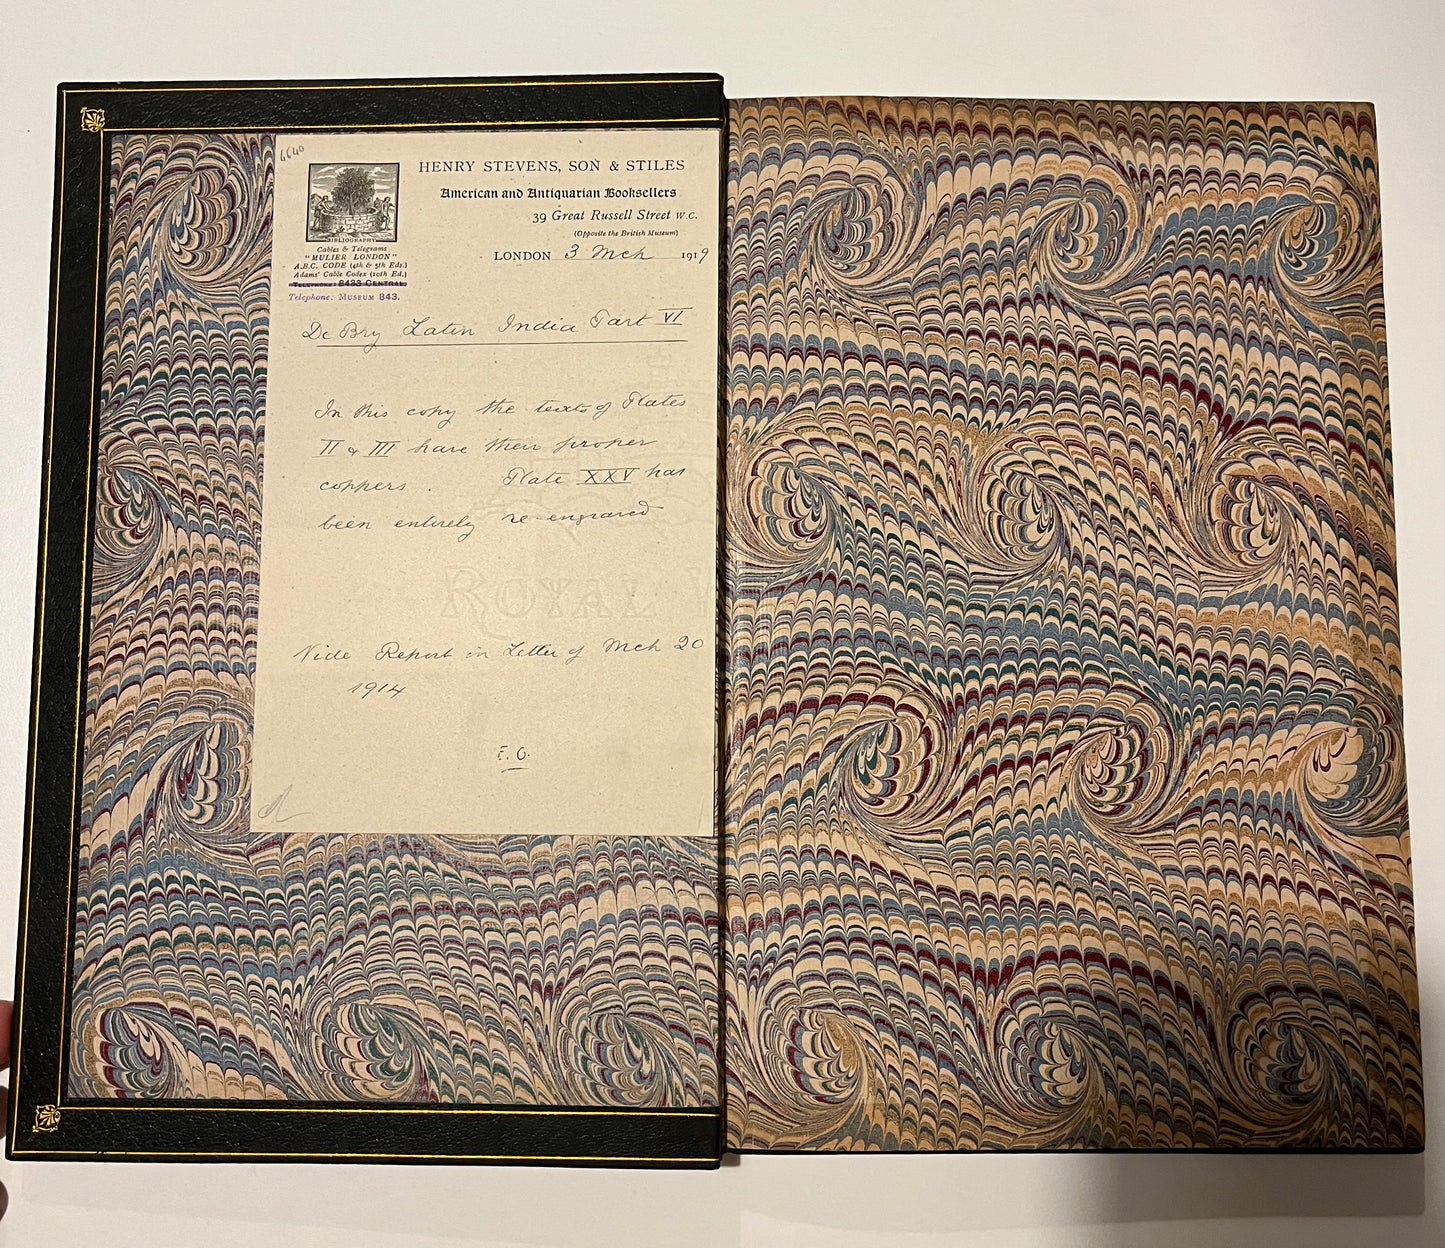 6640
HENRY STEVENS, SON & STILES
American and Antiquarian Booksellers
39 Great Russell Street W.C.
(Opposite the British Museum)
LONDON 3 Mch 1919
BIBLIOGRAPHY
Cables & Telegrams
"MULIER LONDON"
A.B.C. CODE (4th & 5th Eds.)
Adams' Cable Codex (10th Ed.)
TELEPHONE: 8433 CENTRAL.
Telephone: MUSEUM 843.
De Bry Latin India Part VI
In this copy the texts of Plates
II & III have their proper
coppers. Plate XXV has
been entirely re-engraved
ROYAL
Vide Report in Letter of Mch 20
1914